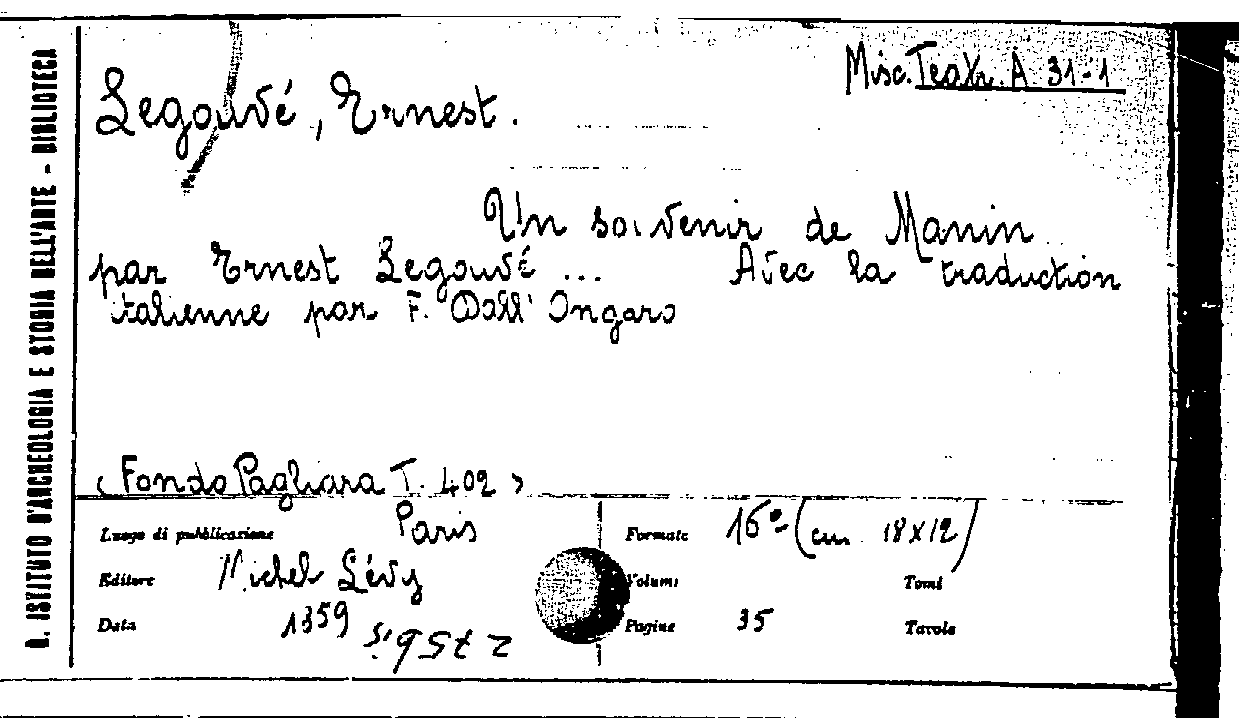 R. ISTITUTO D'ARCHEOLOGIA E STORIA DELL'ARTE - BIBLIOTECA
Misc. Teatr. A 31-1
Legouvé, Ernest.
Un souvenir de Manin
par Ernest Legouvé ... Avec la traduction
italienne par F. Dall' Ongaro
(Fondo Pagliara T. 402)
Luogo di pubblicazione Paris
Formato 16º (cm 18x12)
Editore Michel Lévy
Volumi Tomi
Data 1859
Pagine 35 Tavole